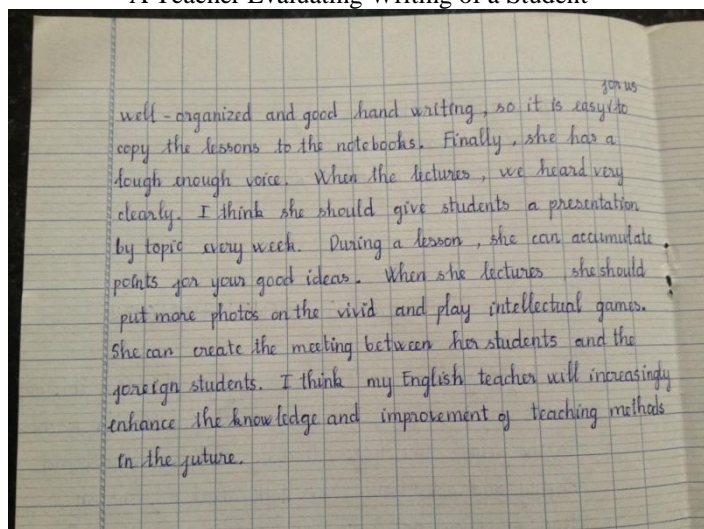 A Teacher Evaluating Writing of a Student
for us
well-organized and good hand writing, so it is easy to
copy the lessons to the notebooks. Finally, she has a
tough enough voice. When the lectures, we heard very
clearly. I think she should give students a presentation
by topic every week. During a lesson, she can accumulate
points for your good ideas. When she lectures she should
put more photos on the vivid and play intellectual games.
She can create the meeting between her students and the
foreign students. I think my English teacher will increasingly
enhance the knowledge and improvement of teaching methods
in the future.